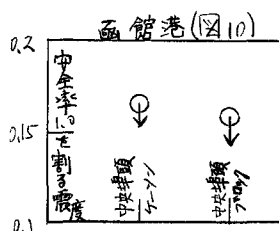 函館港(図10)
0.2
0.15
0.1
安全率1.0を割る震度
中央埠頭
ケーソン
中央埠頭
ブロック